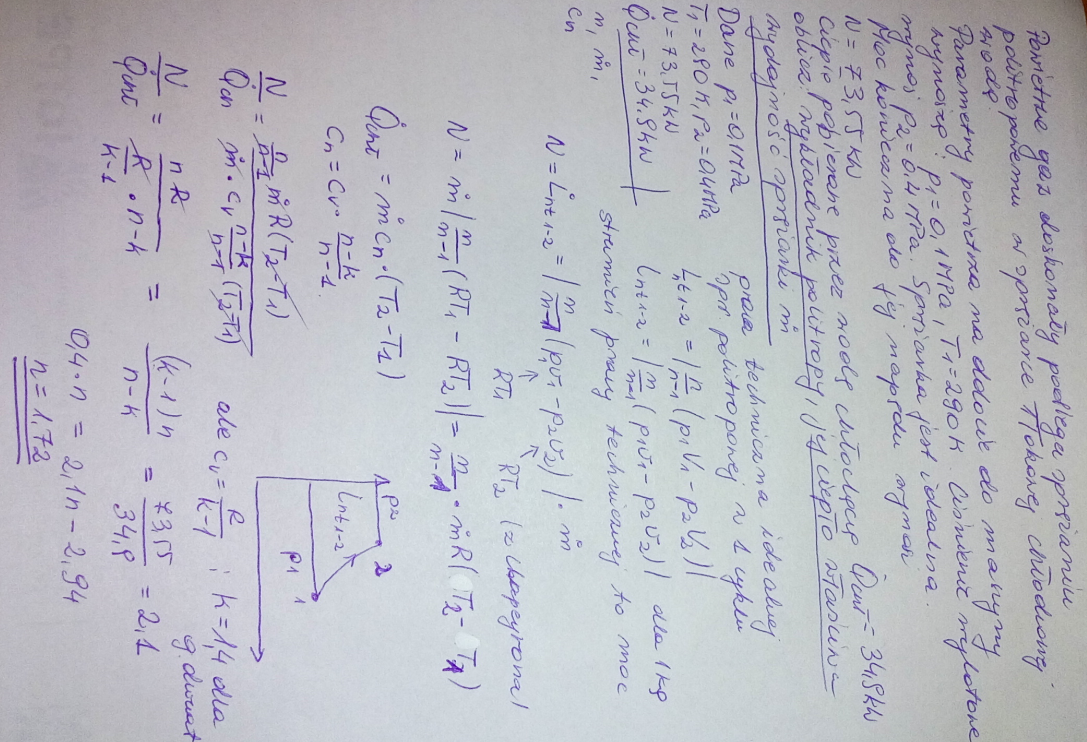 Powietrze gaz doskonały podlega sprężaniu
politropowemu w sprężarce tłokowej chłodzonej
wodą
Parametry powietrza na dolocie do maszyny
wynoszą: p1 = 0,1MPa, T1 = 290K. Ciśnienie wylotowe
wynosi p2 = 0,4 MPa. Sprężarka jest idealna.
Moc konieczna do jej napędu wynosi
N = 73,55 kW
Ciepło pobierane przez wodę chłodzącą Q̇ = 34,9kW
oblicz: wykładnik politropy, ciepło właściwe
wydajność sprężarki ṁ
Dane p1 = 0,1MPa
T1 = 290K, p2 = 0,4MPa
N = 73,55kW
Q̇ = 34,9kW
n, ṁ,
cn
praca techniczna idealnej
spr politropowej w 1 cyklu
Lt1-2 = | n/n-1 (p1V1 - p2V2) |
Lnt1-2 = | n/n-1 (p1v1 - p2v2) | dla 1kg
strumień pracy technicznej to moc
N = L̇nt1-2 = | n/n-1 (p1v1 - p2v2) | · ṁ
RT1 RT2 (z Clapeyrona)
N = ṁ | n/n-1 (RT1 - RT2) | = n/n-1 · ṁR(T2 - T1)
Q̇ = ṁcn · (T2 - T1)
cn = cv · n-k/n-1
N/Q̇ = n/n-1 ṁR(T2-T1) / ṁ · cv n-k/n-1 (T2-T1) ale cv = R/k-1 i k = 1,4 dla
g. dwuat
N/Q̇ = nR / R/k-1 · n-k = (k-1)n / n-k = 73,55/34,9 = 2,1
0,4 · n = 2,1n - 2,94
n = 1,72
p2
2
Lnt1-2
p1
1